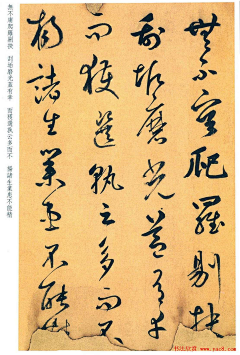 無不庸爬羅剔抉
刮垢磨光蓋有幸
而獲選孰云多而不
揚諸生業患不能精
無不庸爬羅剔抉 刮垢磨光蓋有幸 而獲選孰云多而不 揚諸生業患不能精
书法欣赏
www.yac8.com